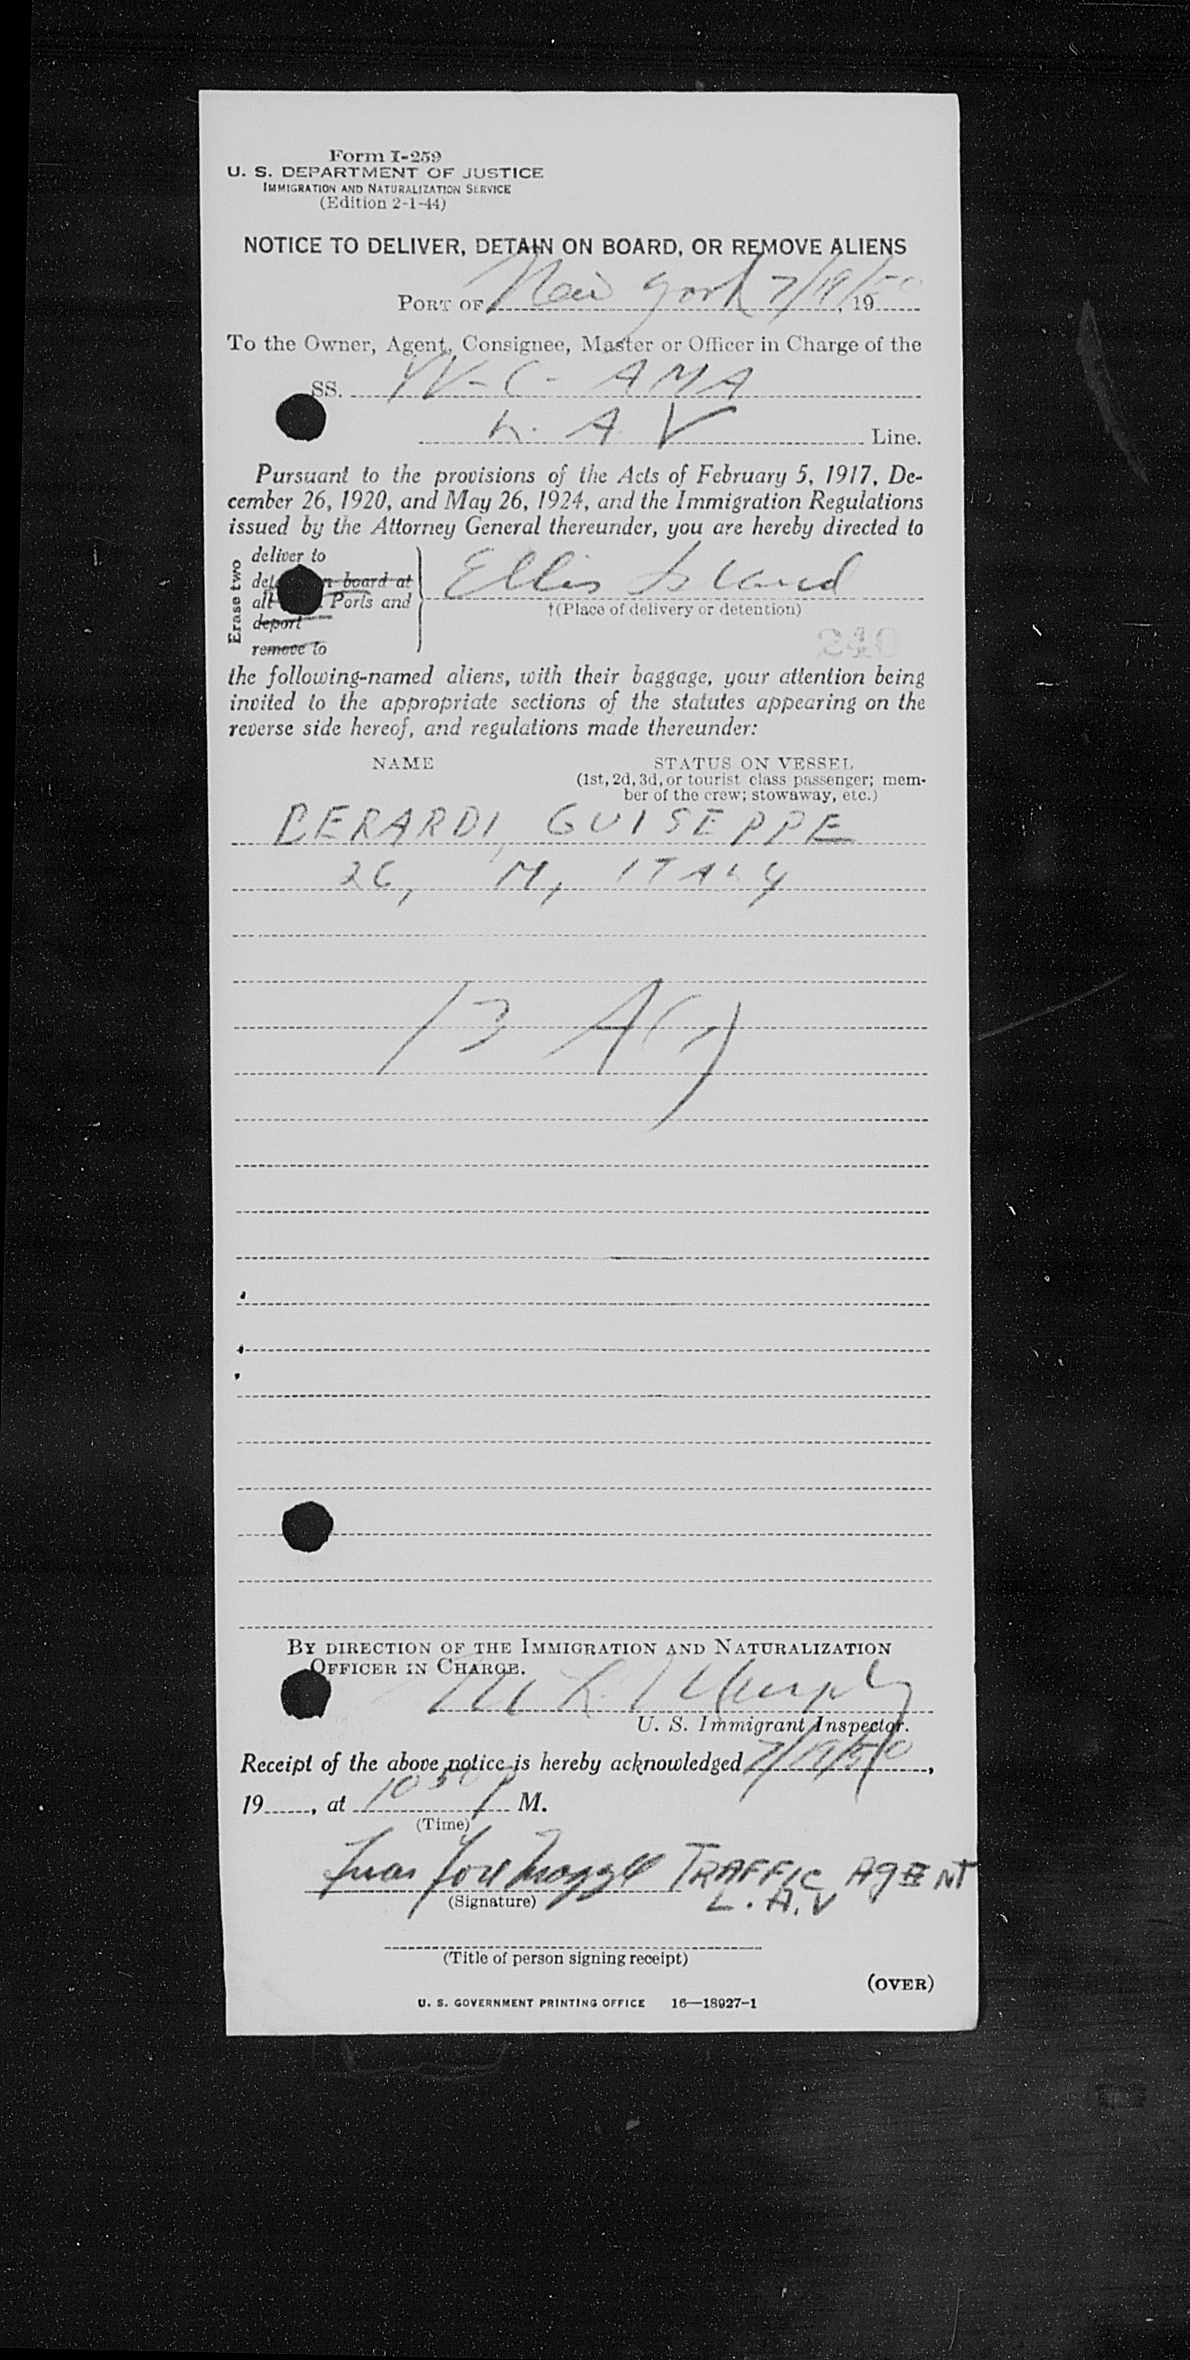 Form I-259
U. S. DEPARTMENT OF JUSTICE
IMMIGRATION AND NATURALIZATION SERVICE
(Edition 2-1-44)
NOTICE TO DELIVER, DETAIN ON BOARD, OR REMOVE ALIENS
PORT OF New York 7/19/50, 19
To the Owner, Agent, Consignee, Master or Officer in Charge of the
SS. YV-C-AMA
L. A V Line.
Pursuant to the provisions of the Acts of February 5, 1917, De-
cember 26, 1920, and May 26, 1924, and the Immigration Regulations
issued by the Attorney General thereunder, you are hereby directed to
Erase two
deliver to
board at
all Ports and
deport
remove to
Ellis Island
†(Place of delivery or detention)
240
the following-named aliens, with their baggage, your attention being
invited to the appropriate sections of the statutes appearing on the
reverse side hereof, and regulations made thereunder:
NAME STATUS ON VESSEL
(1st, 2d, 3d, or tourist class passenger; mem-
ber of the crew; stowaway, etc.)
BERARDI, GUISEPPE
26, M, ITALY
13 A(1)
BY DIRECTION OF THE IMMIGRATION AND NATURALIZATION
OFFICER IN CHARGE.
Murphy
U. S. Immigrant Inspector.
Receipt of the above notice is hereby acknowledged 7/19/50,
19, at 10 50 P M.
(Time)
TRAFFIC AGENT
(Signature) L. A. V
(Title of person signing receipt)
(OVER)
U. S. GOVERNMENT PRINTING OFFICE 16—18927-1